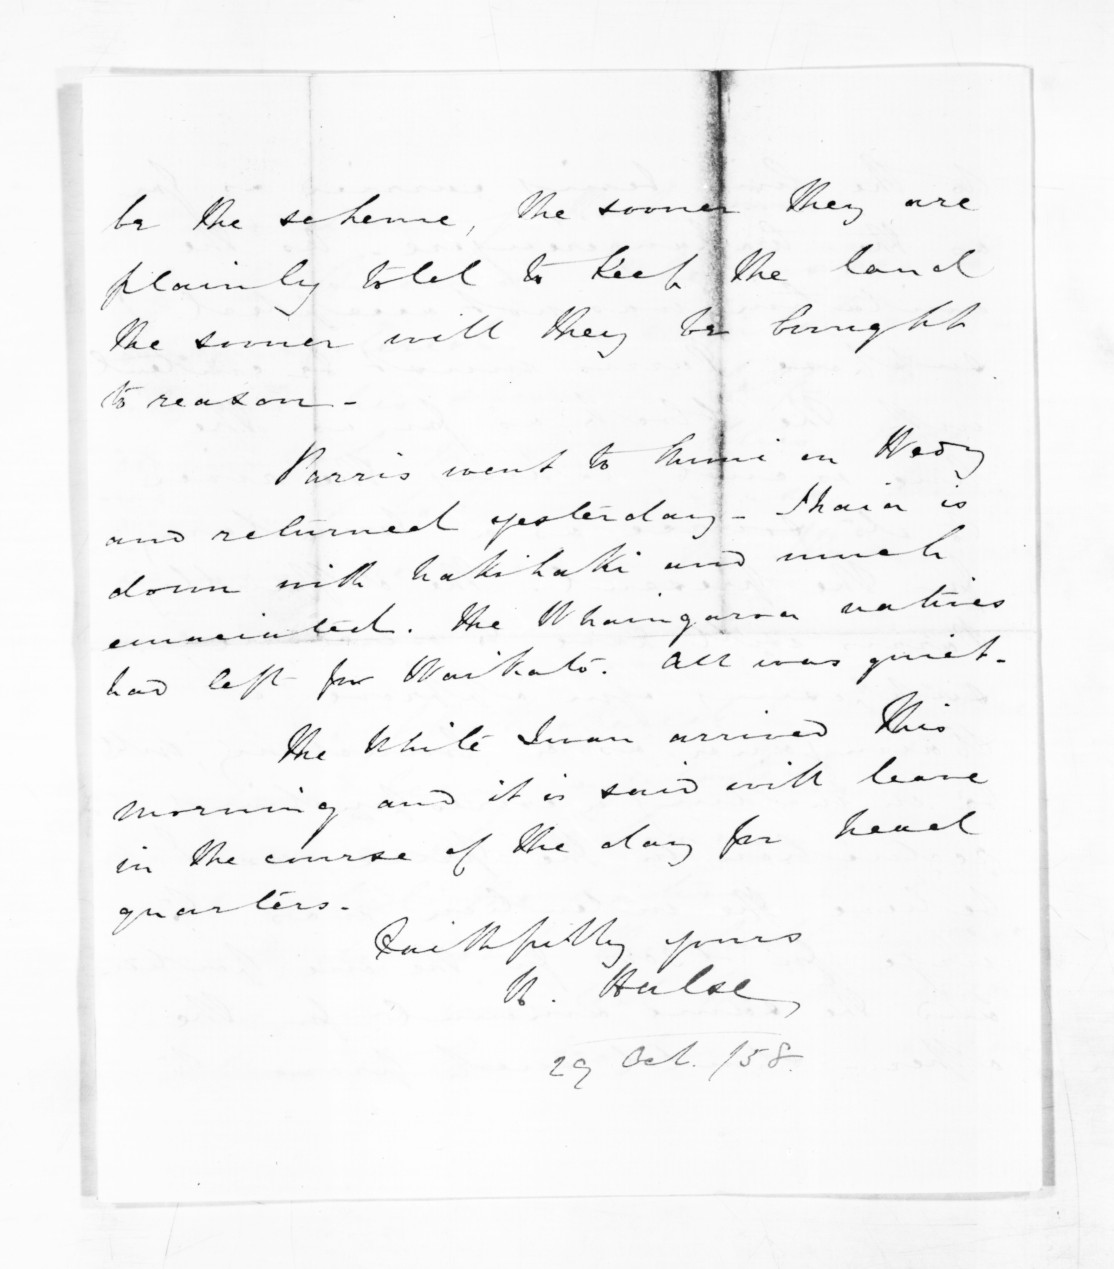 be the scheme, the sooner they are
plainly told to keep the land
the sooner will they be brought
to reason -
Parris went to Mimi on Wedy
and returned yesterday - Ihaia is
down with hakihaki and much
emaciated. The Whaingaroa natives
had left for Waikato. All was quiet -
The White Swan arrived this
morning and it is said will leave
in the course of the day for head
quarters -
Faithfully yours
H. Halse
29 Oct. /58.